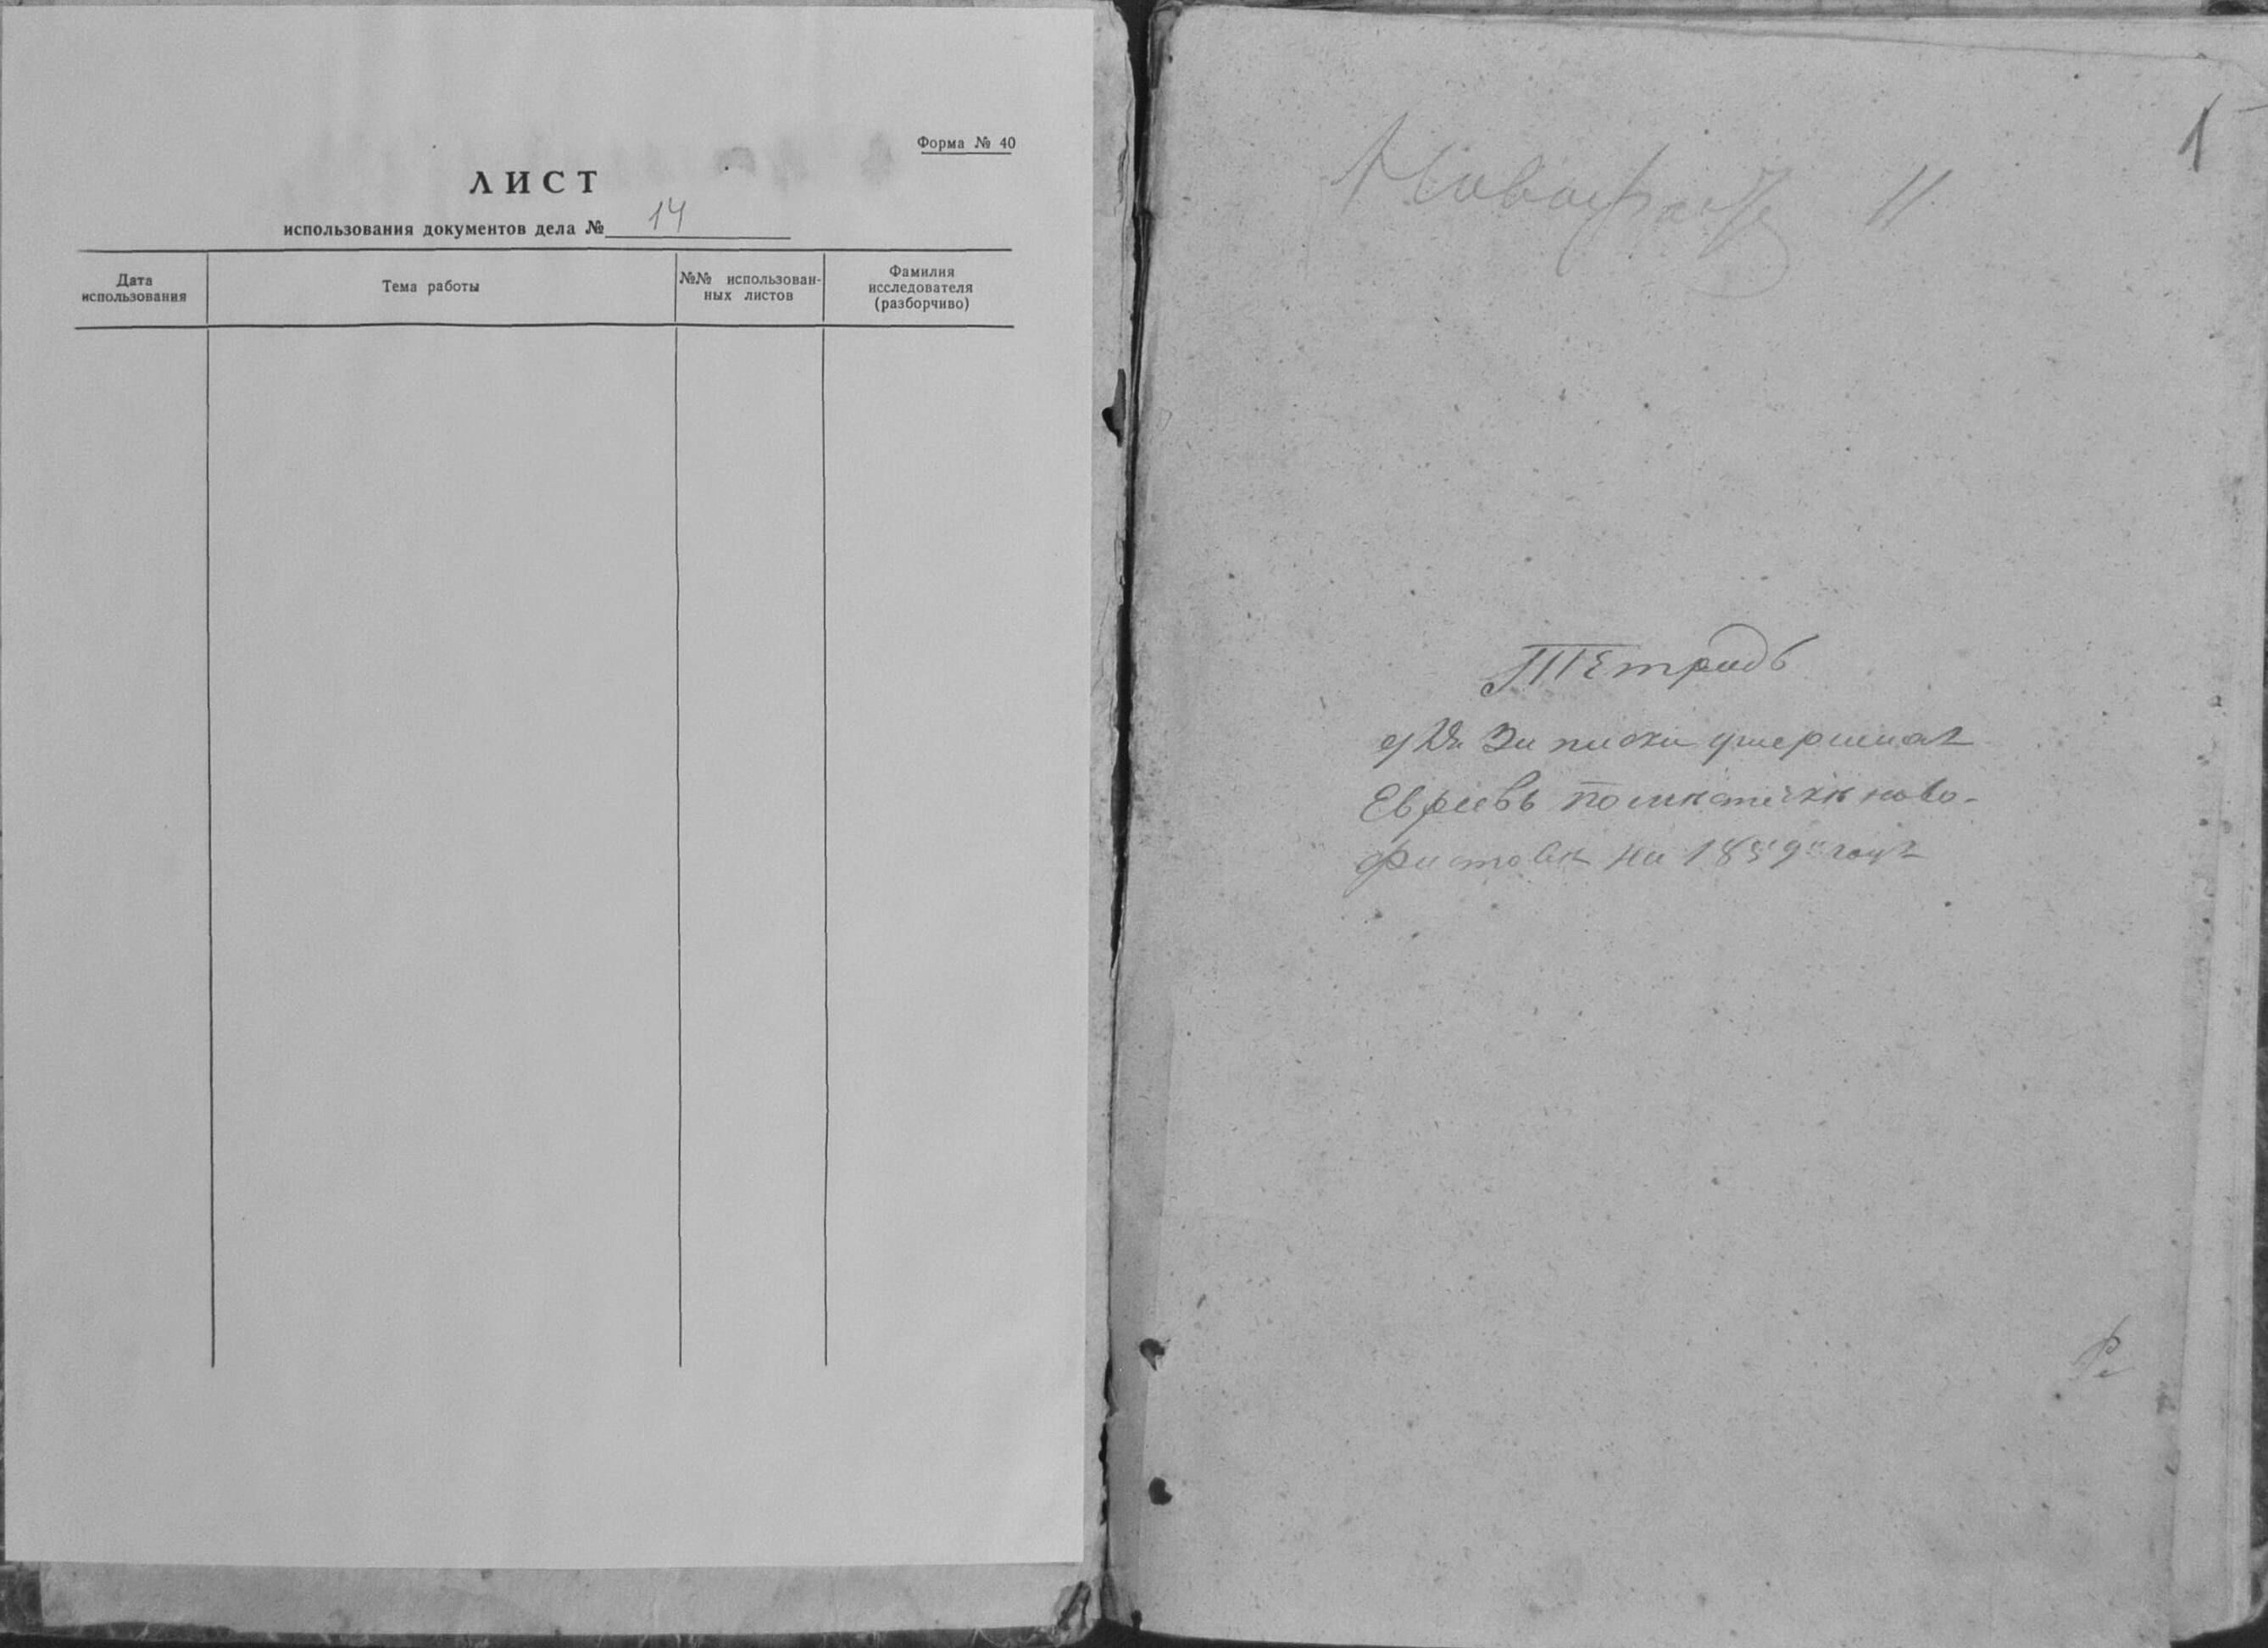 Форма № 40
ЛИСТ
использования документов дела № 14
Дата
использования
Тема работы
№№ использован-
ных листов
Фамилия
исследователя
(разборчиво)
1
11
Тетрадь
для Записки умершихъ
Евреевъ по местечки ново-
на 1859 годъ